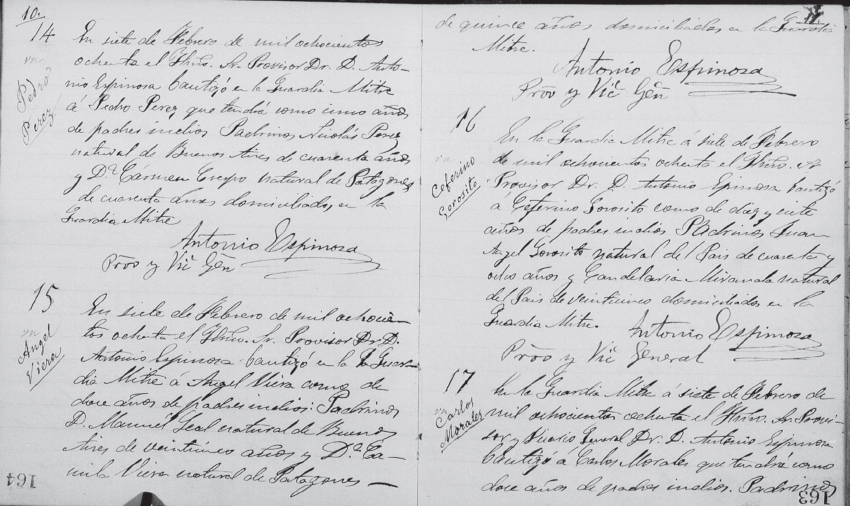 10.
14
Pedro
Perez
En siete de Febrero de mil ochocientos
ochenta el Ilmo. Sr. Provisor Dr. D. Anto-
nio Espinosa bautizó en la Guardia Mitre
á Pedro Perez que tendrá como cinco años
de padres indios Padrinos Nicolás Perez
natural de Buenos Aires de cuarenta años
y Dª Carmen Crespo natural de Patagones
de cuarenta años domiciliados en la
Guardia Mitre
Antonio Espinosa
Pròv y Vic Gen
15
Angel
Viera
En siete de Febrero de mil ochocien-
tos ochenta el Ilmo. Sr. Provisor Dr. D.
Antonio Espinosa bautizó en la Guar-
dia Mitre á Angel Viera como de
doce años de padres indios: Padrinos
D. Manuel Leal natural de Buenos
Aires de veinticinco años y Dª Ca-
mila Viera natural de Patagones
164
de quince años domiciliados en la Guardia
Mitre.
Antonio Espinosa
Pròv y Vic Gen
16
Ceferino
Gorosito
En la Guardia Mitre á siete de Febrero
de mil ochocientos ochenta el Ilmo. Sr
Provisor Dr. D. Antonio Espinosa bautizó
a Ceferino Gorosito como de diez y siete
años de padres indios Padrinos Juan
Angel Gorosito natural del Pais de cuarenta y
ocho años y Candelaria Miranda natural
del Pais de veinticinco domiciliados en la
Guardia Mitre.
Antonio Espinosa
Pròv y Vic General
17
Carlos
Morales
En la Guardia Mitre á siete de Febrero de
mil ochocientos ochenta el Ilmo. Sr Provi-
sor y Vicario General Dr. D. Antonio Espinosa
bautizó á Carlos Morales que tendrá como
doce años de padres indios. Padrinos
163